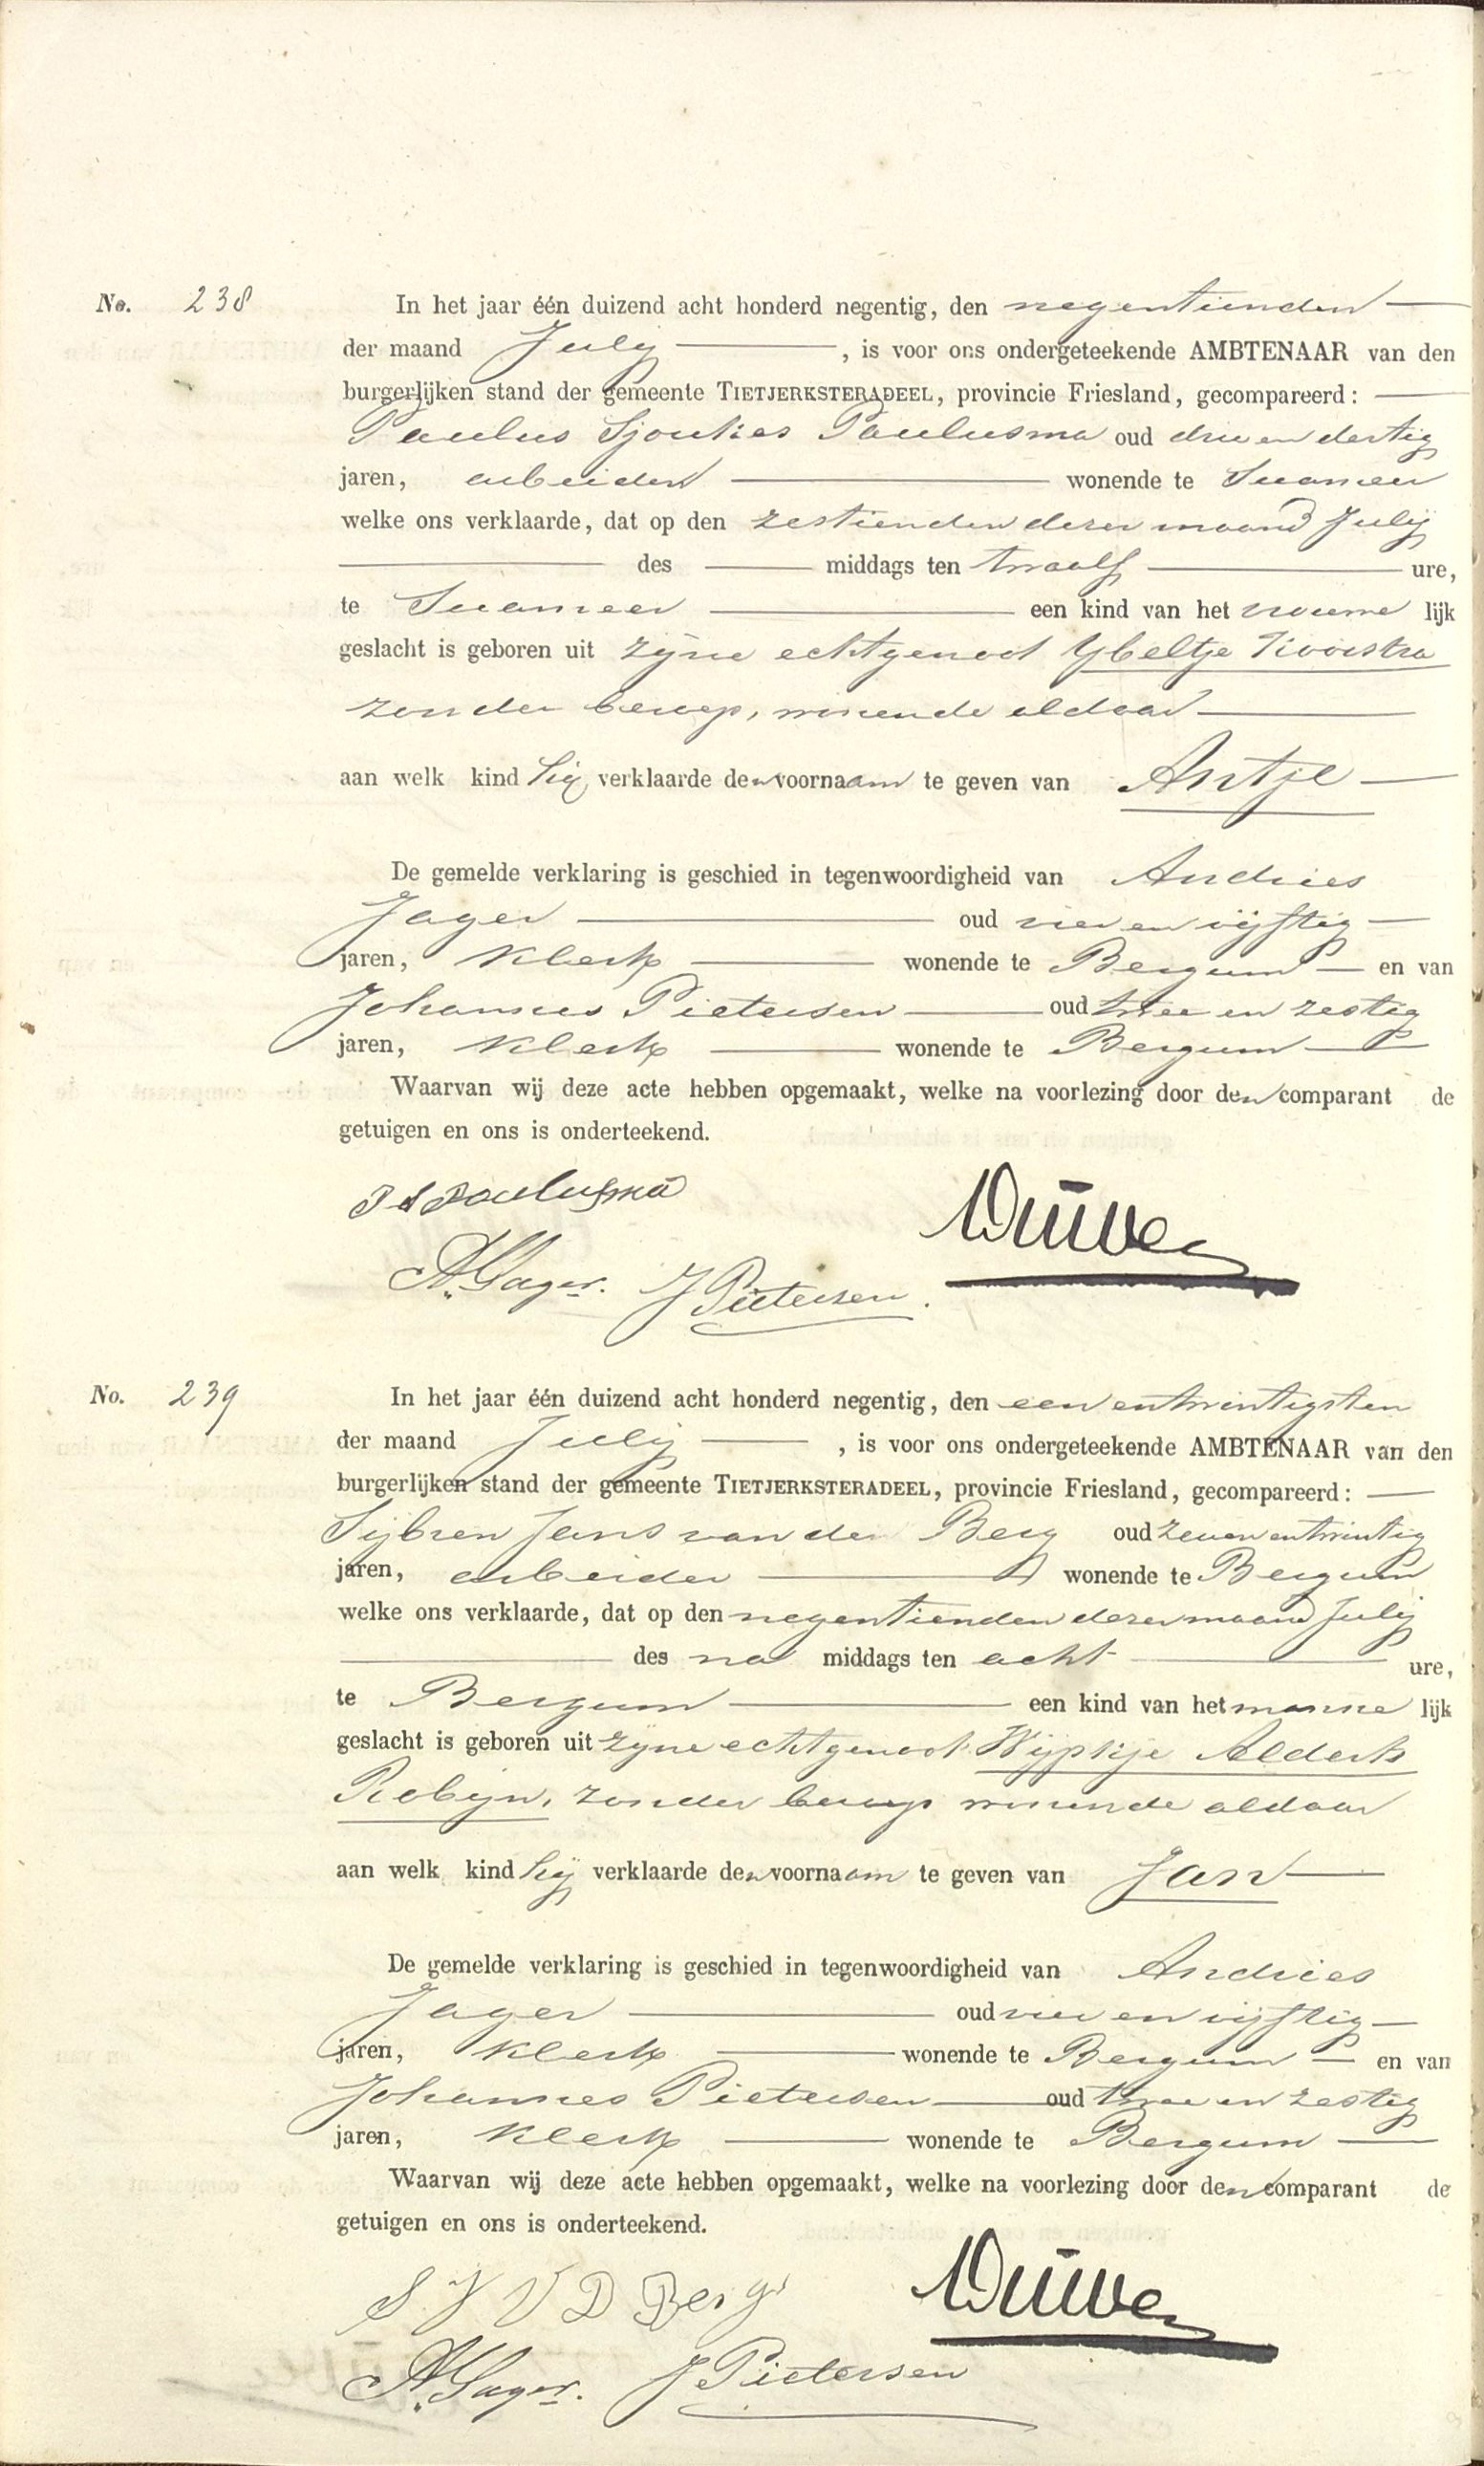 No. 238
In het jaar één duizend acht honderd negentig, den negentienden
der maand July, is voor ons ondergeteekende AMBTENAAR van den
burgerlijken stand der gemeente TIETJERKSTERADEEL, provincie Friesland, gecompareerd:
Paulus Sjoukes Paulusma oud drie en dertig
jaren, arbeider wonende te Suameer
welke ons verklaarde, dat op den zestienden dezer maand July
des middags ten twaalf ure,
te Suameer een kind van het vrouwe lijk
geslacht is geboren uit zijne echtgenoot Ybeltje Kooistra
zonder beroep, wonende aldaar
aan welk kind hij verklaarde den voornaam te geven van Antje
De gemelde verklaring is geschied in tegenwoordigheid van Andries
Jager oud vier en vijftig
jaren, klerk wonende te Bergum en van
Johannes Pietersen oud twee en zestig
jaren, klerk wonende te Bergum
Waarvan wij deze acte hebben opgemaakt, welke na voorlezing door den comparant de
getuigen en ons is onderteekend.
P S Paulusma
A. Jager. J Pietersen.
No. 239
In het jaar één duizend acht honderd negentig, den een en twintigsten
der maand July, is voor ons ondergeteekende AMBTENAAR van den
burgerlijken stand der gemeente TIETJERKSTERADEEL, provincie Friesland, gecompareerd:
Sijbren Jans van der Berg oud zeven en twintig
jaren, arbeider wonende te Bergum
welke ons verklaarde, dat op den negentienden dezer maand July
des na middags ten acht ure,
te Bergum een kind van het manne lijk
geslacht is geboren uit zijne echtgenoot Wijpkje Alderts
Robijn, zonder beroep wonende aldaar
aan welk kind hij verklaarde den voornaam te geven van Jan
De gemelde verklaring is geschied in tegenwoordigheid van Andries
Jager oud vier en vijftig
jaren, klerk wonende te Bergum en van
Johannes Pietersen oud twee en zestig
jaren, klerk wonende te Bergum
Waarvan wij deze acte hebben opgemaakt, welke na voorlezing door den comparant de
getuigen en ons is onderteekend.
S J V D Berg
A. Jager. J Pietersen